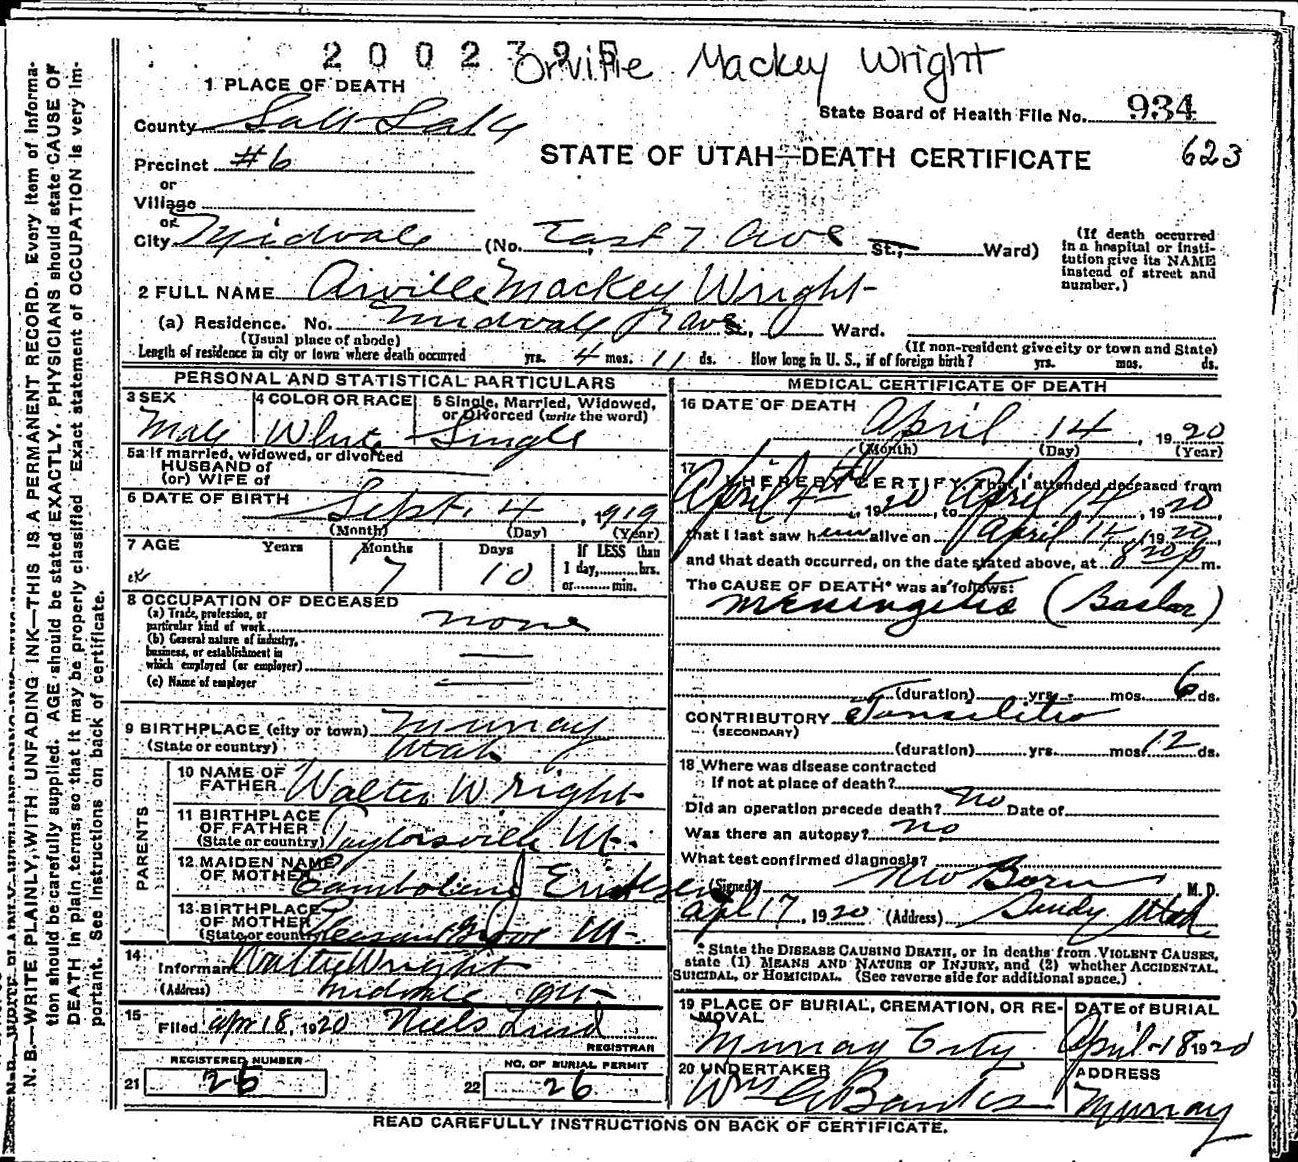 2002
Orville Mackey Wright
1 PLACE OF DEATH
State Board of Health File No. 934
County Salt Lake
STATE OF UTAH—DEATH CERTIFICATE 623
Precinct #6
or
Village
or
City Midvale (No. East 7 Ave St., Ward)
(If death occurred in a hospital or insti-
tution give its NAME
instead of street and
number.)
2 FULL NAME Arville Mackey Wright
(a) Residence. No. Midvale Ave St., Ward.
(Usual place of abode) (If non-resident give city or town and State)
Length of residence in city or town where death occurred yrs. 4 mos. 11 ds. How long in U. S., if of foreign birth? yrs. mos. ds.
PERSONAL AND STATISTICAL PARTICULARS
3 SEX 4 COLOR OR RACE 5 Single, Married, Widowed,
or Divorced (write the word)
Male White Single
5a If married, widowed, or divorced
HUSBAND of
(or) WIFE of
6 DATE OF BIRTH Sept. 4, 1919
(Month) (Day) (Year)
7 AGE Years Months Days If LESS than
1 day, hrs.
or min.
7 10
8 OCCUPATION OF DECEASED
(a) Trade, profession, or
particular kind of work none
(b) General nature of industry,
business, or establishment in
which employed (or employer)
(c) Name of employer
9 BIRTHPLACE (city or town) Murray
(State or country) Utah
PARENTS
10 NAME OF
FATHER Walter Wright
11 BIRTHPLACE
OF FATHER
(State or country) Taylorsville Ut.
12 MAIDEN NAME
OF MOTHER Ericksen
13 BIRTHPLACE
OF MOTHER
(State or country) Pleasant Grove Ut.
14
Informant Walter Wright
(Address) Midvale Ut
15
Filed Apr 18, 1920 Niels Lind
REGISTRAR
REGISTERED NUMBER NO. OF BURIAL PERMIT
21 26 22 26
MEDICAL CERTIFICATE OF DEATH
16 DATE OF DEATH
April 14, 1920
(Month) (Day) (Year)
17
I HEREBY CERTIFY, That I attended deceased from
April 4th, 1920, to April 14, 1920,
that I last saw him alive on April 14, 1920,
and that death occurred, on the date stated above, at 8 20 p m.
The CAUSE OF DEATH* was as follows:
Meningitis (Basilar)
(duration) yrs. mos. 6 ds.
CONTRIBUTORY Tonsilitis
(SECONDARY)
(duration) yrs. mos. 12 ds.
18 Where was disease contracted
If not at place of death?
Did an operation precede death? no Date of
Was there an autopsy? no
What test confirmed diagnosis?
(Signed) M. D.
Apr 17, 1920 (Address) Sandy Utah
*State the DISEASE CAUSING DEATH, or in deaths from VIOLENT CAUSES,
state (1) MEANS AND NATURE OF INJURY, and (2) whether ACCIDENTAL,
SUICIDAL, or HOMICIDAL. (See reverse side for additional space.)
19 PLACE OF BURIAL, CREMATION, OR RE-
MOVAL DATE of BURIAL
Murray City April-18 1920
20 UNDERTAKER ADDRESS
Murray
READ CAREFULLY INSTRUCTIONS ON BACK OF CERTIFICATE.
N. B.—WRITE PLAINLY, WITH UNFADING INK—THIS IS A PERMANENT RECORD. Every item of informa-
tion should be carefully supplied. AGE should be stated EXACTLY. PHYSICIANS should state CAUSE OF
DEATH in plain terms, so that it may be properly classified. Exact statement of OCCUPATION is very im-
portant. See instructions on back of certificate.